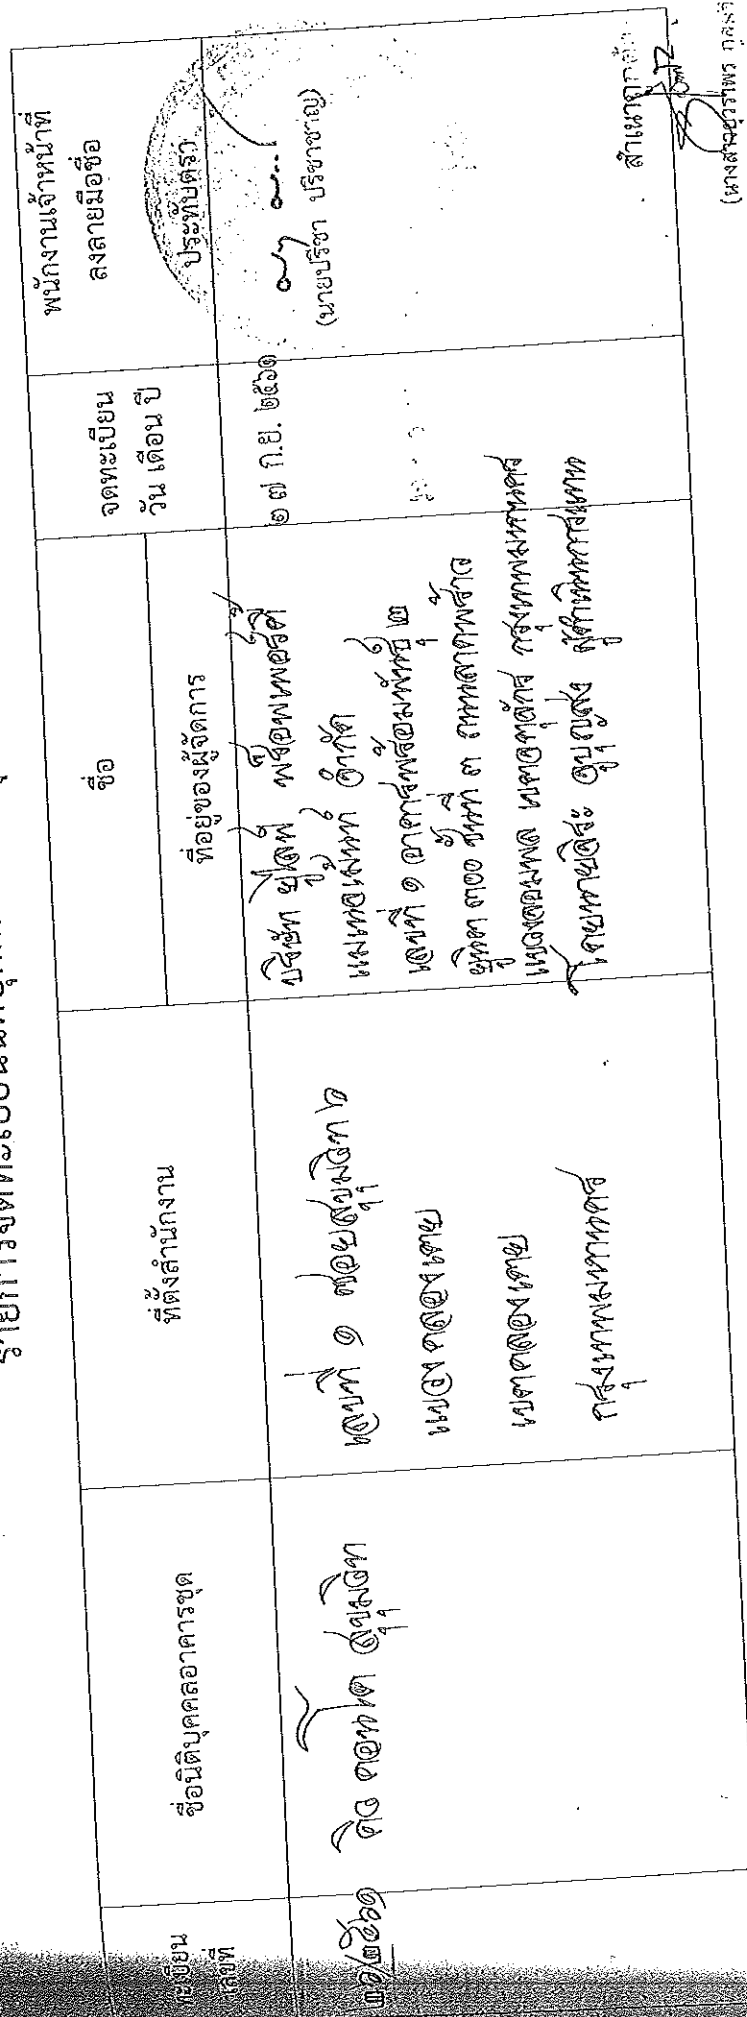 รายการจดทะเบียน
ทะเบียน
เลขที่
ชื่อนิติบุคคลอาคารชุด
ที่ตั้งสำนักงาน
ชื่อ
ที่อยู่ของผู้จัดการ
จดทะเบียน
วัน เดือน ปี
พนักงานเจ้าหน้าที่
ลงลายมือชื่อ
ประทับตรา
๓๑/๒๕๖๑
คิว คอนโด สุขุมวิท
เลขที่ ๑ ซอยสุขุมวิท ๖
แขวงคลองเตย
เขตคลองเตย
กรุงเทพมหานคร
บริษัท ยูไลฟ์ พร็อพเพอร์ตี้
แมเนจเม้นท์ จำกัด
เลขที่ ๑ อาคารพร้อมพันธุ์ ๒
ยูนิต ๓๐๐ ชั้นที่ ๓ ถนนลาดพร้าว
แขวงจอมพล เขตจตุจักร กรุงเทพมหานคร
โดยนายอิสระ บุญสง ผู้ดำเนินการแทน
๒๗ ก.ย. ๒๕๖๑
(นายปรีชา ปรีชาชาญ)
สำเนาถูกต้อง